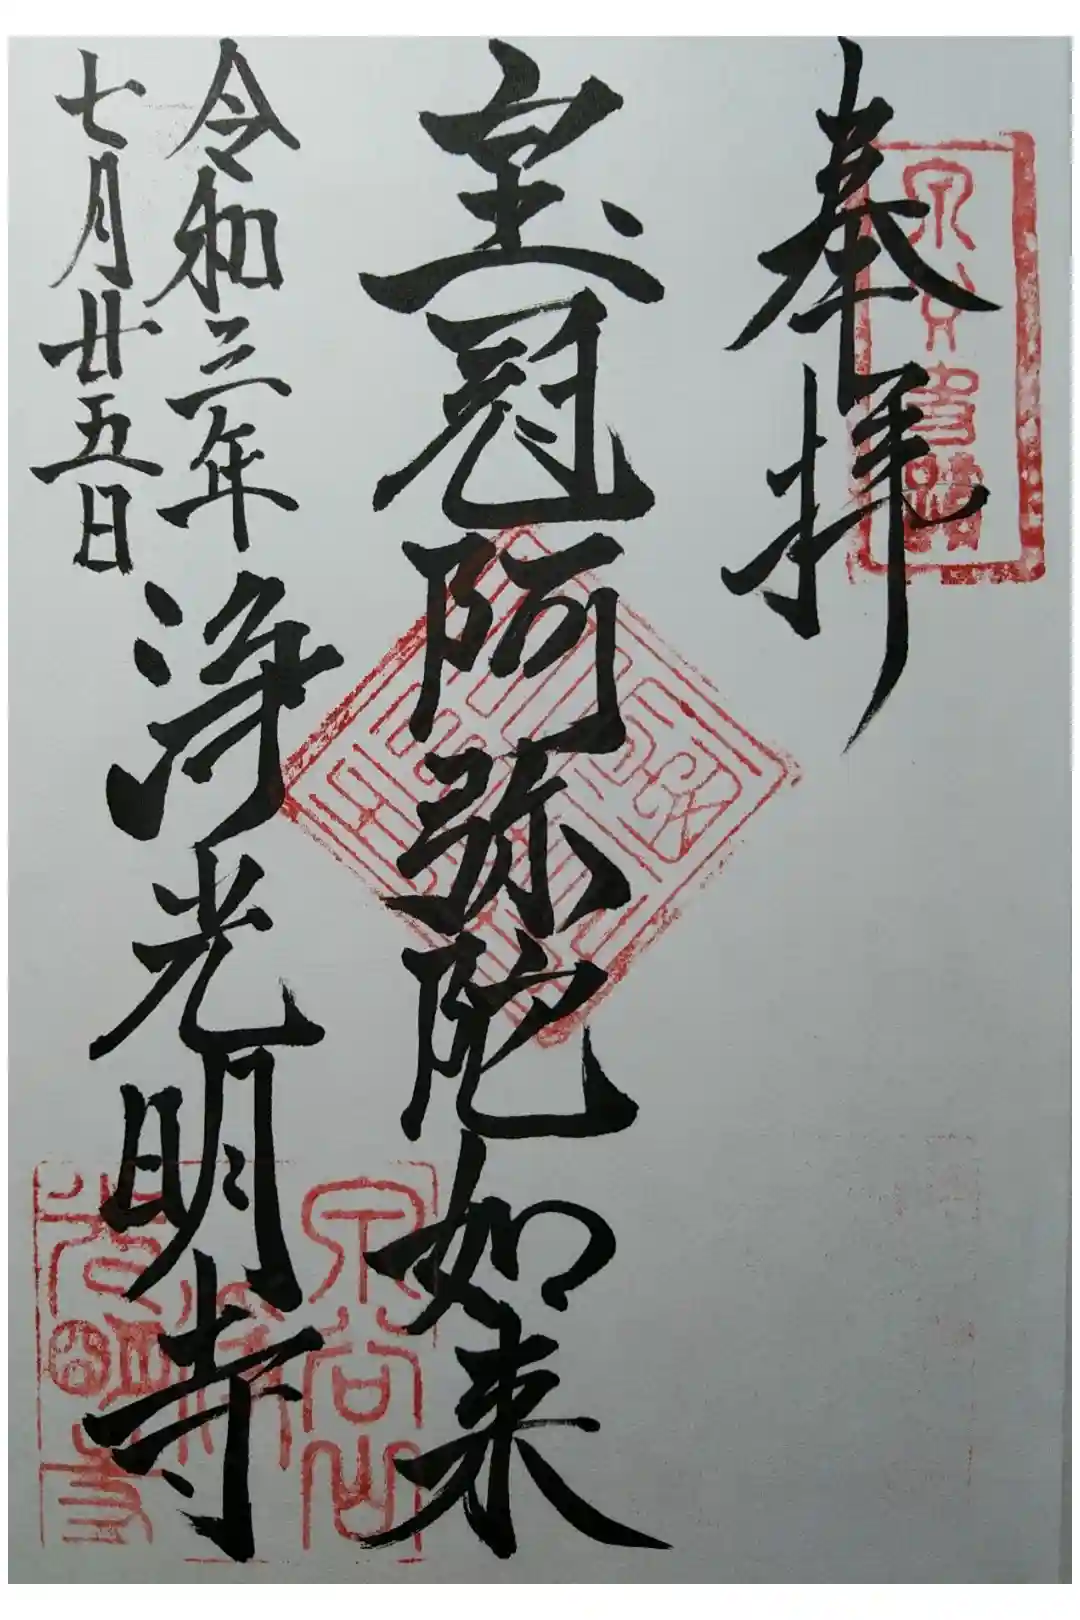 奉拝
宝冠阿弥陀如来
令和三年
七月廿五日
浄光明寺
泉谷山